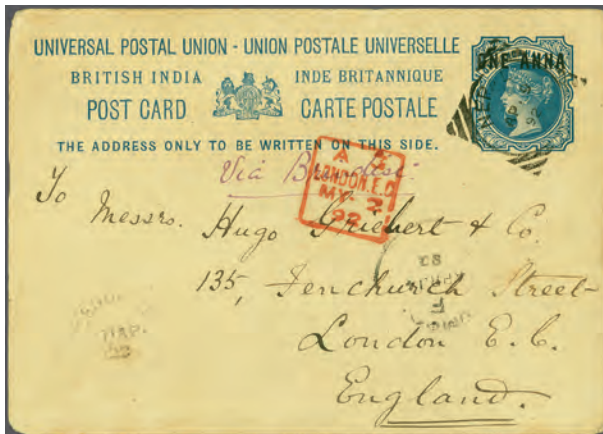 UNIVERSAL POSTAL UNION - UNION POSTALE UNIVERSELLE
BRITISH INDIA INDE BRITANNIQUE
POST CARD CARTE POSTALE
THE ADDRESS ONLY TO BE WRITTEN ON THIS SIDE.
ONE ANNA
Via Brindisi
LONDON.E.C
MY 2
92
To
Messrs. Hugo Griebert & Co.
135, Fenchurch Street
London E.C.
England.